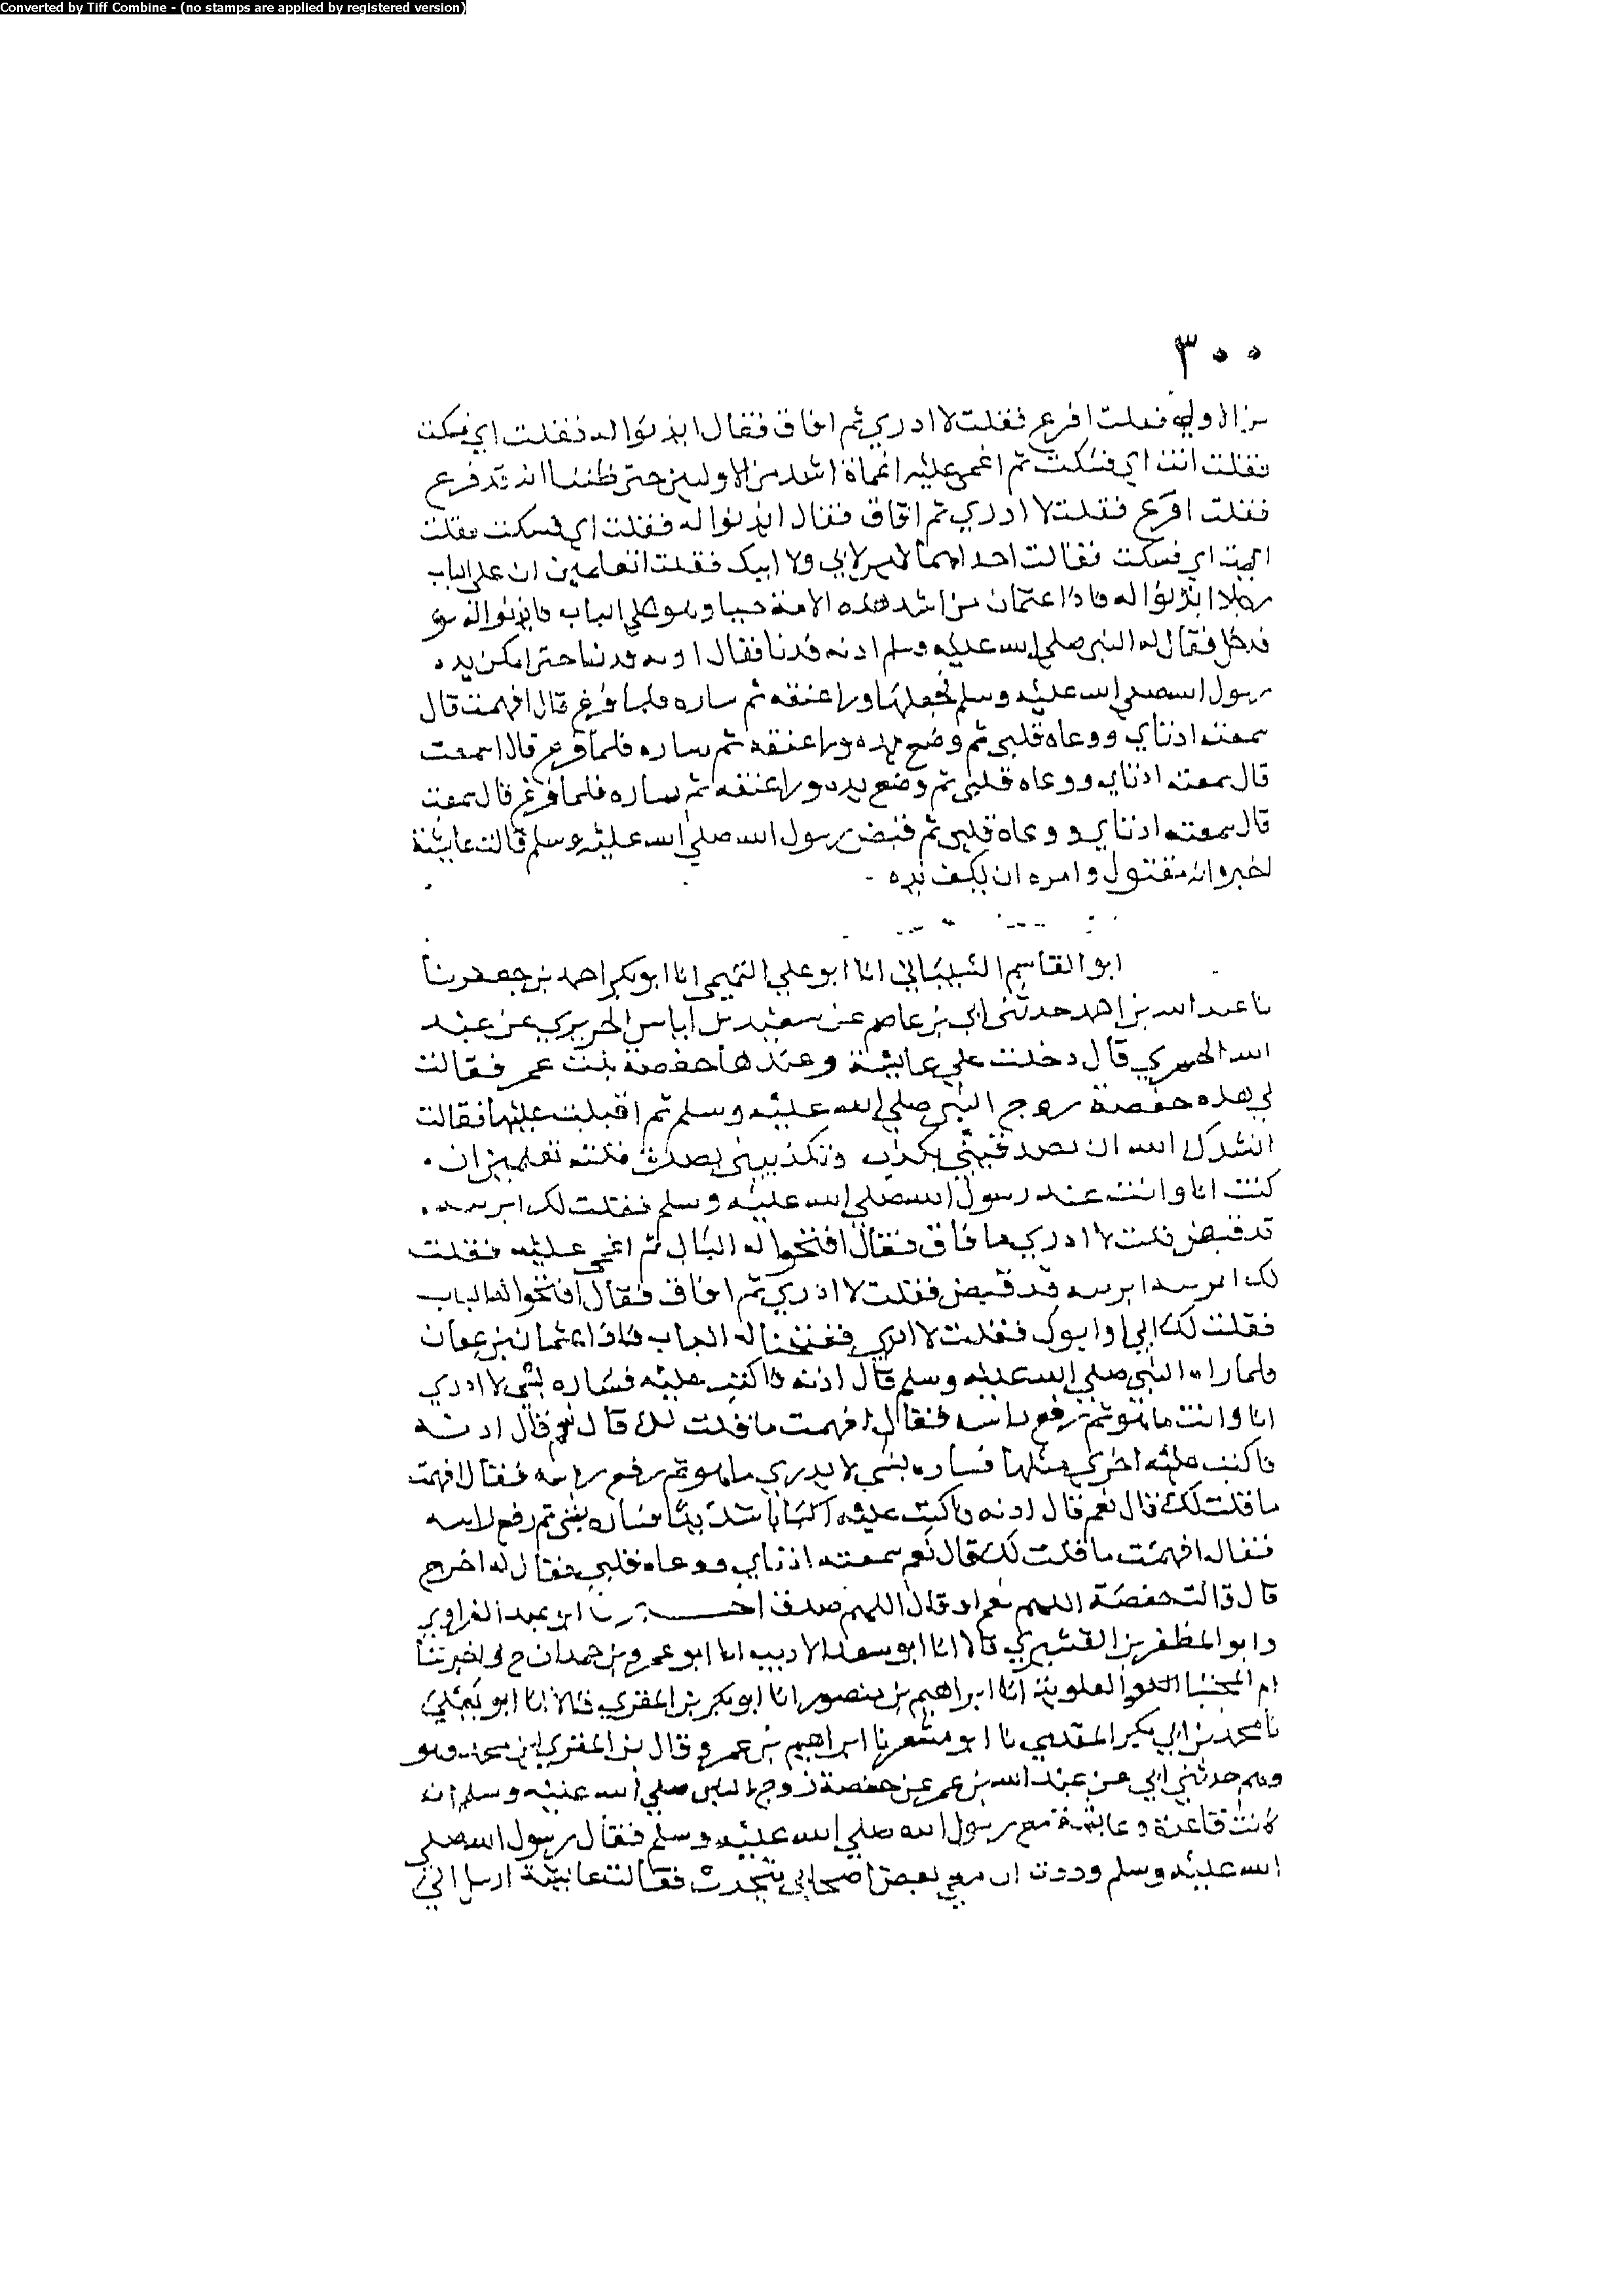 Converted by Tiff Combine - (no stamps are applied by registered version)
٣٠٠
من الاولى فقلت افرغ فقلت لا ادري ثم افاق فقال ايذنوا له فقلت ابي فسكت
فقلت انت ابي فسكت ثم اغمي عليه اغماة اشد من الاوليين حتى ظننا انه قد فرغ
فقلت افرغ فقلت لا ادري ثم افاق فقال ايذنوا له فقلت ابي فسكت فقلت
ابي فسكت فقالت احداهما ليس لابي ولا ابيك فقلت اتعلمين ان على الباب
رجلا ايذنوا له فاذا عثمان من اشد هذه الامة حيا وهو على الباب فايذنوا له
فدخل فقال له النبي صلى الله عليه وسلم ادنه فدنا فقال ادنه فدنا حتى امكن يده
رسول الله صلى الله عليه وسلم فجعلها ورا عنقه ثم ساره فلما فرغ قال افهمت قال
سمعته اذناي ووعاه قلبي ثم وضع يده ورا عنقه ثم ساره فلما فرغ قال اسمعت
قال سمعته اذناي ووعاه قلبي ثم وضع يده ورا عنقه ثم ساره فلما فرغ قال سمعت
قال سمعته اذناي ووعاه قلبي ثم قبض رسول الله صلى الله عليه وسلم قالت عايشة
اخبره انه مقتول وامره ان يكف يده
ابو القاسم الشيباني انا ابو علي التميمي انا ابو بكر احمد بن جعفر نا
نا عبد الله بن احمد حدثني ابي بن عاصم عن سعيد بن اياس الجريري عن عبد
الله الجسري قال دخلت علي عايشة وعندها حفصة بنت عمر فقالت
لي هذه حفصة زوج النبي صلى الله عليه وسلم ثم اقبلت عليها فقالت
انشدك الله ان تصدقيني بكذب وتكذبيني بصدق قلته تعلمين ان
كنت انا وانت عند رسول الله صلى الله عليه وسلم فقلت لك
قد قبض قلت لا ادري فافاق فقال افتحوا له الباب ثم اغمي عليه فقلت
لك قد قبض فقلت لا ادري ثم افاق فقال افتحوا له الباب
فقلت لك ابي او ابوك فقلت لا ادري ففتحنا له الباب فاذا عثمان بن عفان
فلما راه النبي صلى الله عليه وسلم قال ادنه فاكب عليه فساره بشي لا ادري
انا وانت ما هو ثم رفع راسه فقال افهمت ما قلت لك قال نعم قال ادنه
فاكب عليه اخرى مثلها فساره بشي لا يدري ما هو ثم رفع راسه فقال افهمت
ما قلت لك قال نعم قال ادنه فاكب عليه اكبابا شديدا فساره بشي ثم رفع راسه
فقال افهمت ما قلت لك قال نعم سمعته اذناي ووعاه قلبي فقال له اخرج
قال قالت حفصة اللهم نعم او قال اللهم صدق اخبرنا ابو عبد الله الفراوي
وابو المظفر بن القشيري قالا انا ابو سعد الاديب انا ابو عمرو بن حمدان ح واخبرتنا
ام المجتبا العلوية انا ابراهيم بن منصور انا ابو بكر بن المقري قالا انا ابو يعلى
نا محمد بن ابي بكر المقدمي نا ابو معشر نا ابراهيم بن عمر وقال بن المقري
وهم حدثني ابي عن عبد الله بن عمر عن حفصة زوج النبي صلى الله عليه وسلم ان
كانت قاعدة وعايشة مع رسول الله صلى الله عليه وسلم فقال رسول الله صلى
الله عليه وسلم وددت ان معي بعض اصحابي نتحدث فقالت عايشة ارسل الى